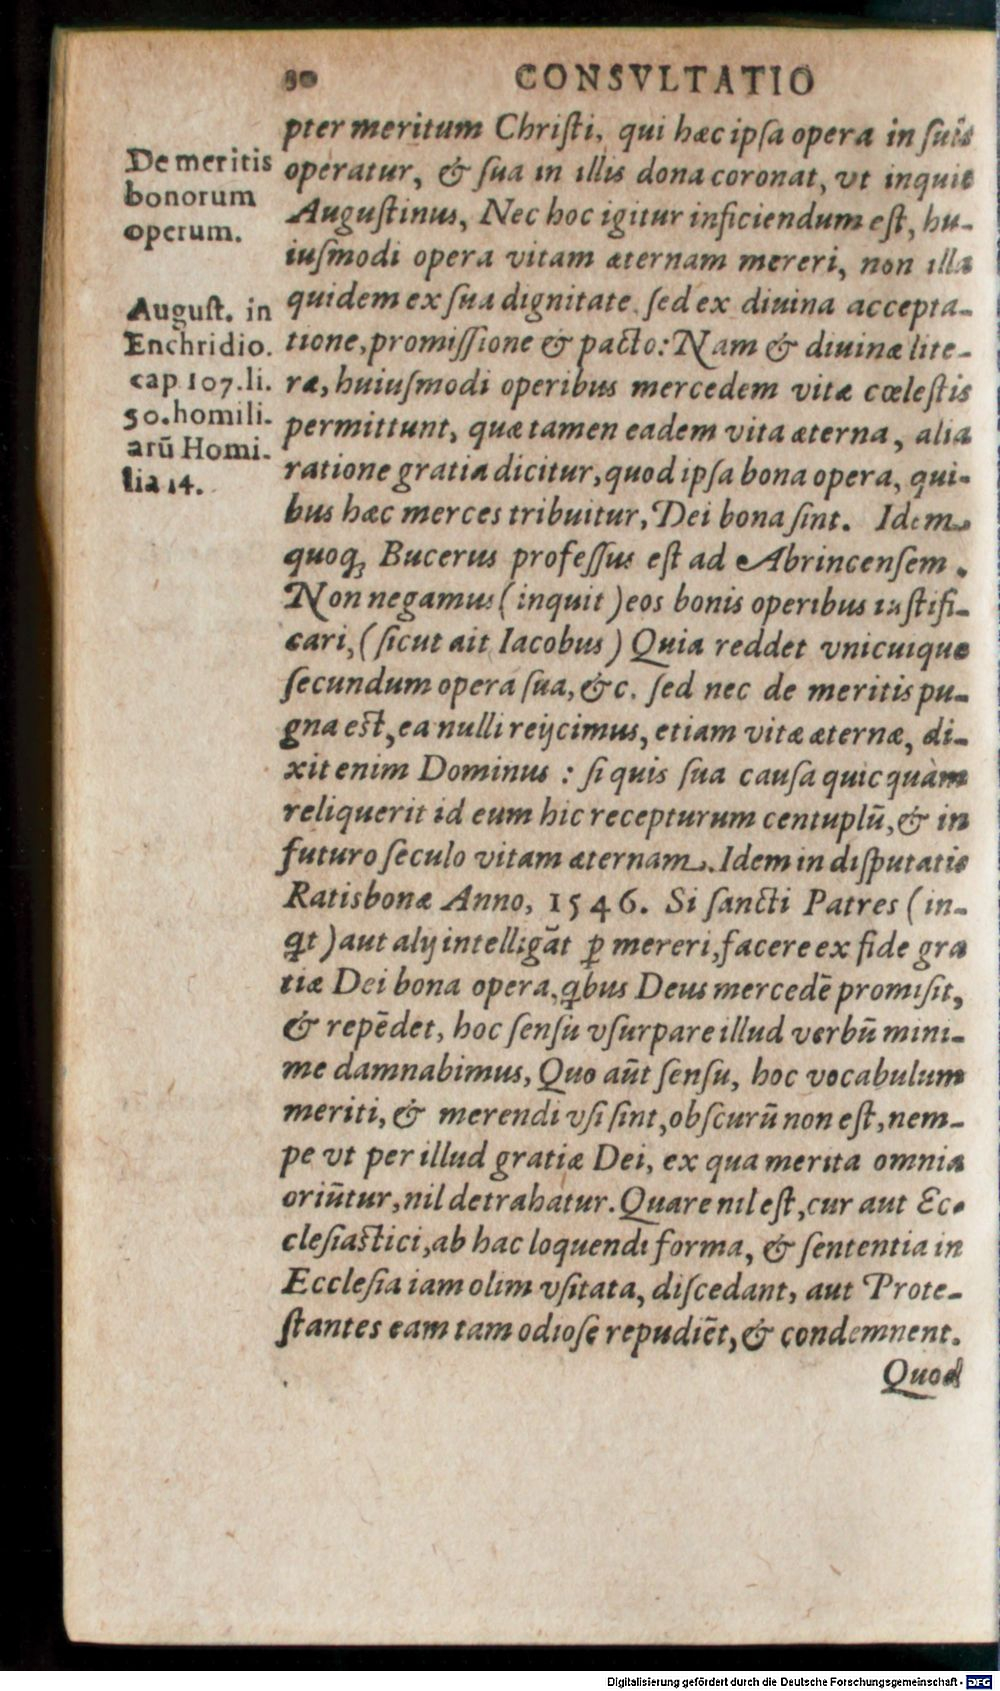 80 CONSVLTATIO
pter meritum Chriſti, qui hæc ipſa opera in ſuis
De meritis
bonorum
operum.
operatur, & ſua in illis dona coronat, vt inquit
Auguſtinus, Nec hoc igitur inficiendum eſt, hu-
iuſmodi opera vitam æternam mereri, non illa
Auguſt. in
Enchridio.
cap 107. li.
50. homili-
arū Homi-
lia 14.
quidem ex ſua dignitate. ſed ex diuina accepta-
tione, promiſſione & pacto: Nam & diuinæ lite-
ræ, huiuſmodi operibus mercedem vitæ cœleſtis
permittunt, quæ tamen eadem vita æterna, alia
ratione gratia dicitur, quod ipſa bona opera, qui-
bus hæc merces tribuitur, Dei bona ſint. Idem
quoq; Bucerus profeſſus eſt ad Abrincenſem.
Non negamus (inquit) eos bonis operibus iuſtifi-
cari, (ſicut ait Iacobus) Quia reddet vnicuique
ſecundum opera ſua, &c. ſed nec de meritis pu-
gna eſt, ea nulli reijcimus, etiam vitæ æternæ, di-
xit enim Dominus: ſi quis ſua cauſa quicquàm
reliquerit id eum hic recepturum centuplū, & in
futuro ſeculo vitam æternam. Idem in diſputatio
Ratisbonæ Anno, 1546. Si ſancti Patres (in-
ꝗt) aut alij intelligāt ꝑ mereri, facere ex fide gra
tiæ Dei bona opera, ꝗbus Deus mercedē promiſit,
& repēdet, hoc ſenſu vſurpare illud verbū mini-
me damnabimus, Quo aūt ſenſu, hoc vocabulum
meriti, & merendi vſi ſint, obſcurū non eſt, nem-
pe vt per illud gratiæ Dei, ex qua merita omnia
oriūtur, nil detrahatur. Quare nil eſt, cur aut Ec-
cleſiaſtici, ab hac loquendi forma, & ſententia in
Eccleſia iam olim vſitata, diſcedant, aut Prote-
ſtantes eam tam odioſe repudiēt, & condemnent.
Quod
Digitalisierung gefördert durch die Deutsche Forschungsgemeinschaft - DFG